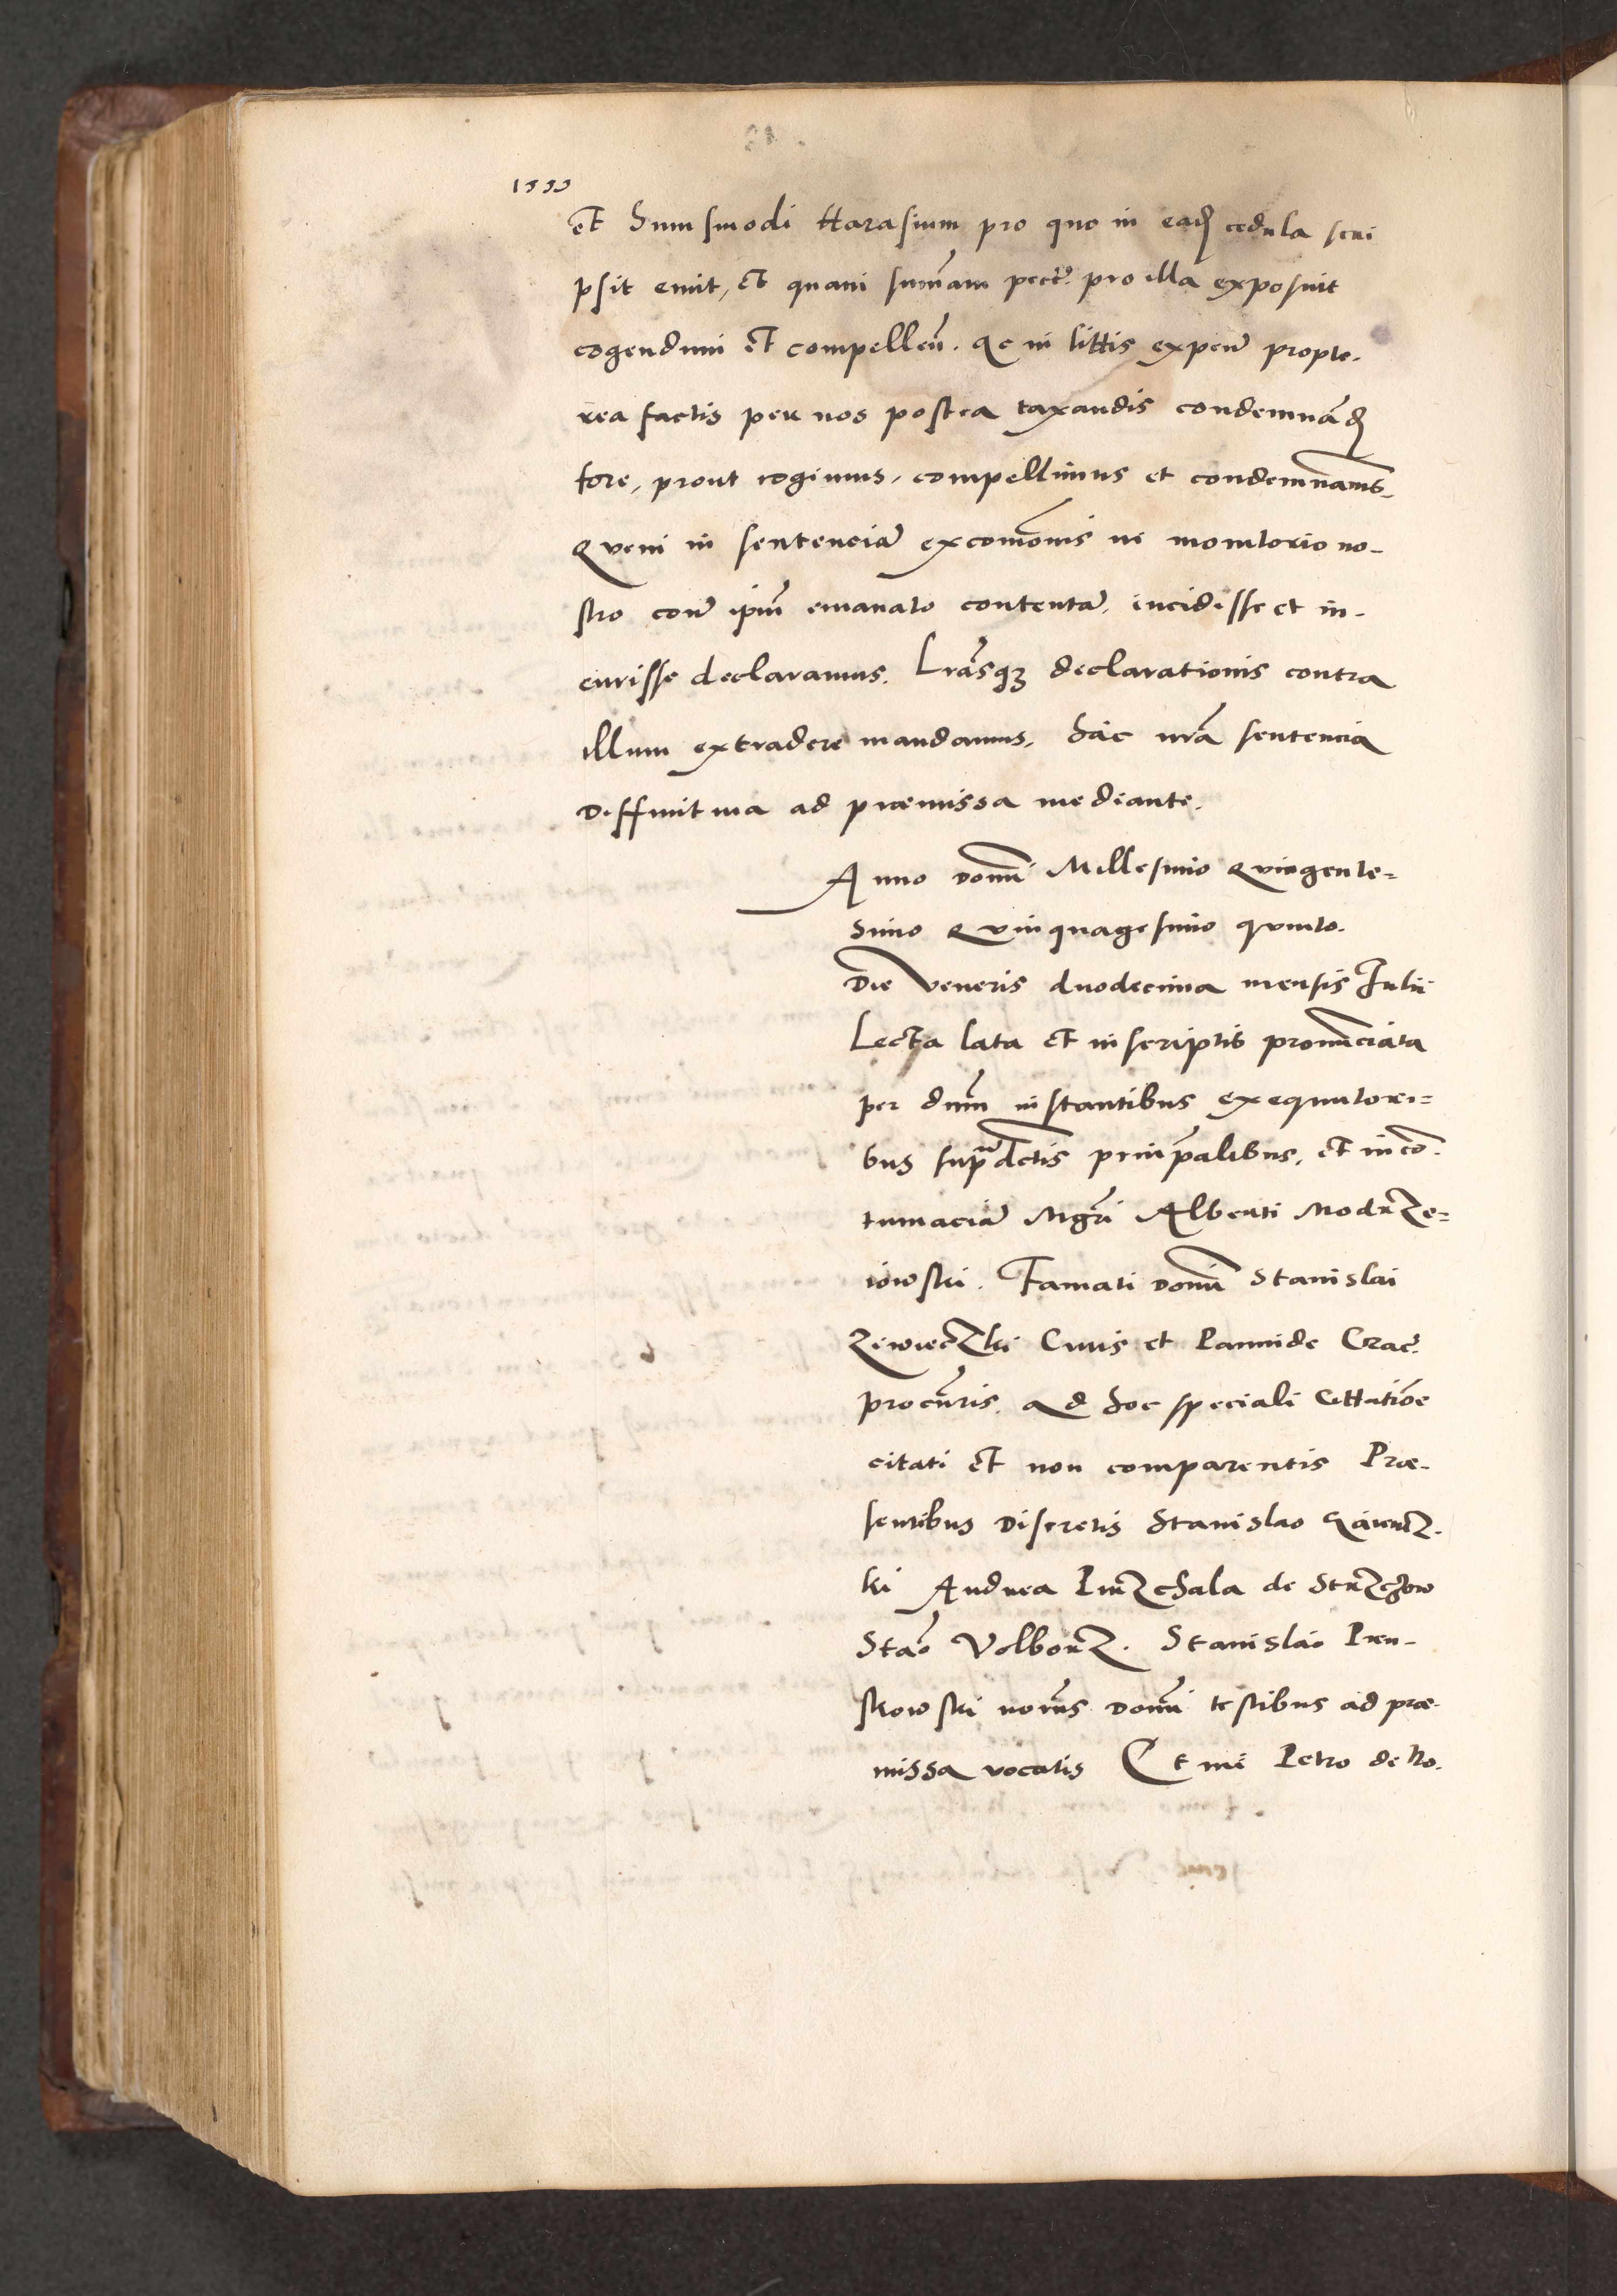 1555
et huiusmodi Harasium pro quo in eadẽ cedula scri
psit emit, et quam sum̃am pecũ. pro illa exposuit
cogendum et compellen̄. ac in littis expen̄ propte-
rea factis per nos postea taxandis condemnãd̃
fore, prout cogimus, compellimus et condemnam̃s.
Quem in sentenciã excom̃onis in monitorio no-
stro con̄ ip̃m emanato contentã, incidisse et in-
currisse declaramus. Lr̃asq3 declarationis contra
illum extradere mandamus, hac nr̃a sentencia
Diffinitiua ad præmissa mediante.
Anno domĩ Millesimo Quingente=
simo Quinquagesimo quinto.
Die Veneris duodecima mensis Iulii
Lecta lata et in scriptis pronũciata
per dn̄m instantibus exequutori=
bus supradc̃tis prin̄palibus, et in cõ
tumaciã Mgr̃i Alberti Modrze=
iowski. Famati domĩ Stanislai
Ziwieczki Ciuis et Pannide Crac̃.
procũris. ad hoc speciali Cittatiõe
citati et non comparentis Præ-
sentibus Discretis Stanislao
ki Andrea de
Stão Volborz. Stanislao Pru-
skowski notr̃is domĩ testibus ad præ-
missa vocatis Et me Petro de Ro.